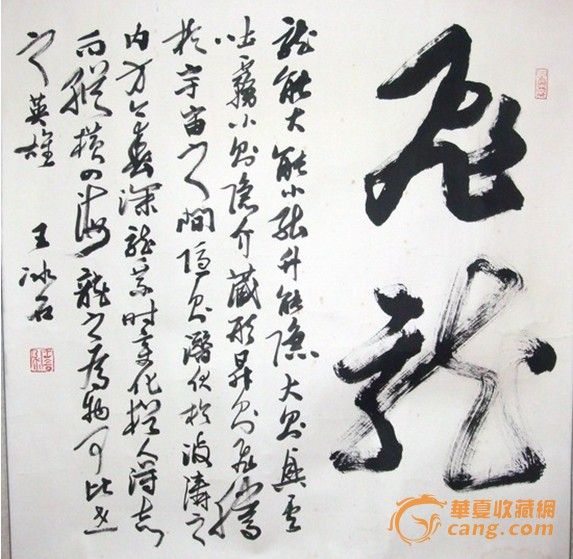 飛龍
龍能大能小能升能隐大则興云
吐霧小则隐介藏形昇则飛騰
於宇宙之間隐则潛伏於波濤之
内方今春深龍乘时变化猶人得志
而縱横四海龍之為物可比世
之英雄 王冰石
華夏收藏網
cang.com